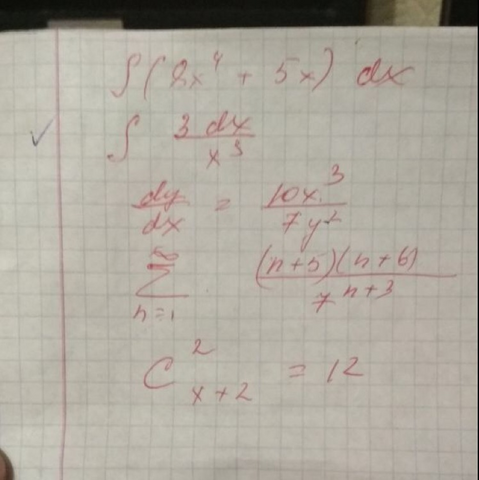 ∫(8x⁴ + 5x) dx
∫ 3 dx / x³
dy/dx = 10x³ / 7y²
∞
∑ (n+5)(n+6) / 7ⁿ⁺³
n=1
C²ₓ₊₂ = 12